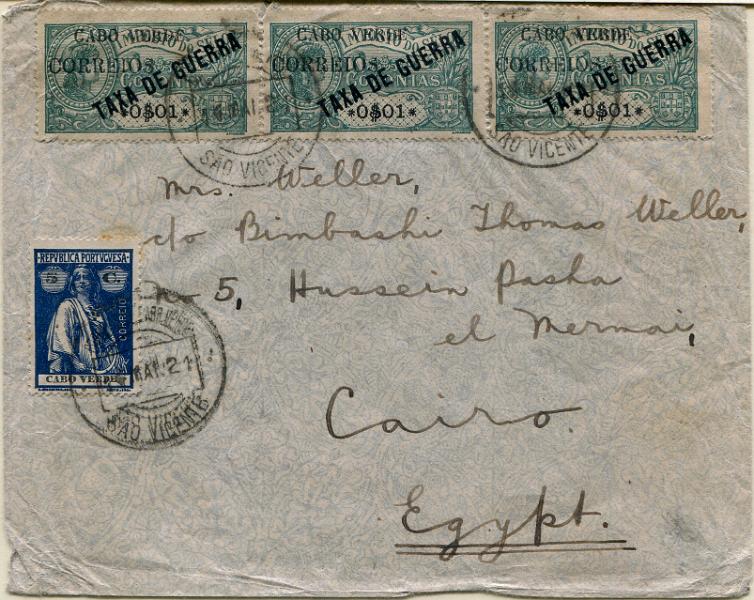 CABO VERDE CABO VERDE CABO VERDE
CORREIOS CORREIOS CORREIOS
TAXA DE GUERRA TAXA DE GUERRA TAXA DE GUERRA
COLONIAS COLONIAS COLONIAS
*0$01* *0$01* *0$01*
SÃO VICENTE SÃO VICENTE
Mrs. Weller,
c/o Bimbashi Thomas Weller,
5, Hussein Pasha
el Mermai,
Cairo.
Egypt.
REPVBLICA PORTVGUESA
5 C.
CORREIO
CABO VERDE
MAI. 21
SÃO VICENTE